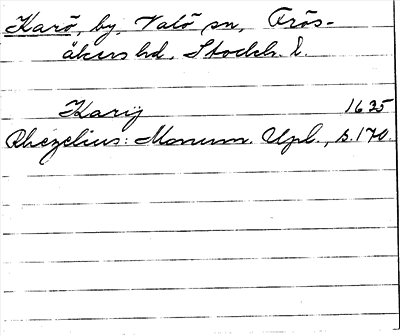 Karö, by, Valö sn, Frös-
åkers hd, Stockh. l.
Karÿ 1635
Rhezelius: Monum. Upl., s. 170.